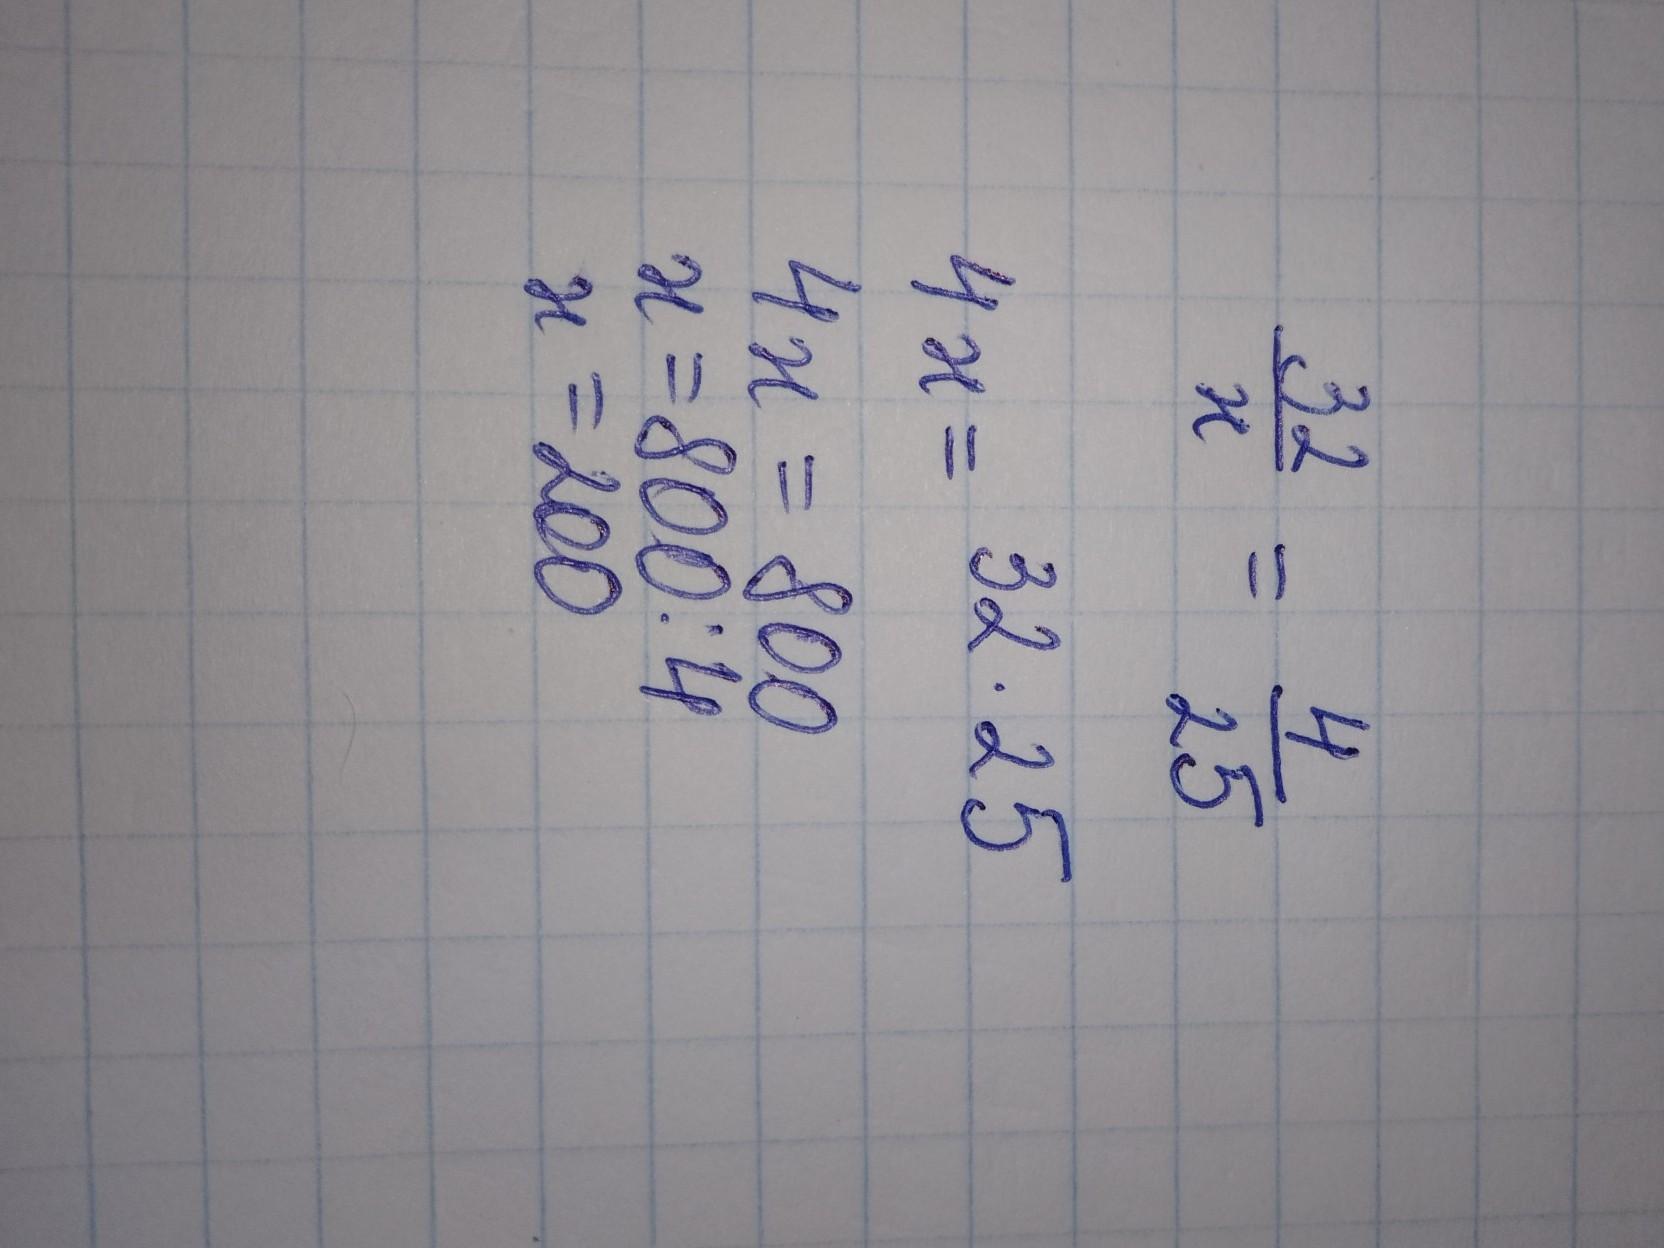 32/x = 4/25
4x = 32 · 25
4x = 800
x = 800 : 4
x = 200